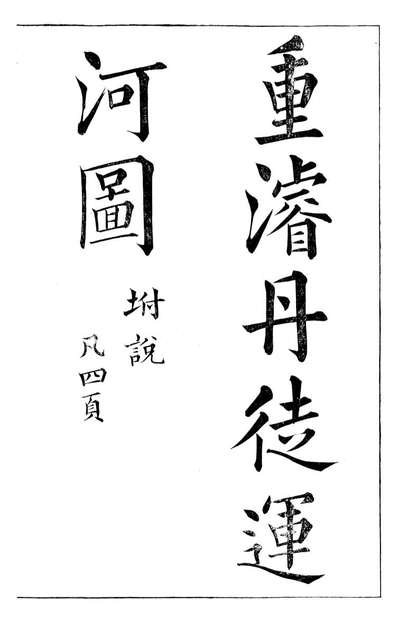 重濬丹徒運
河圖
坿說
凡四頁